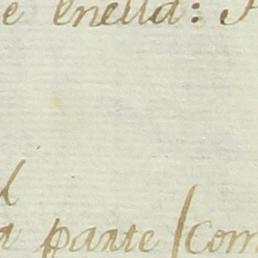 e enella:
parte (com